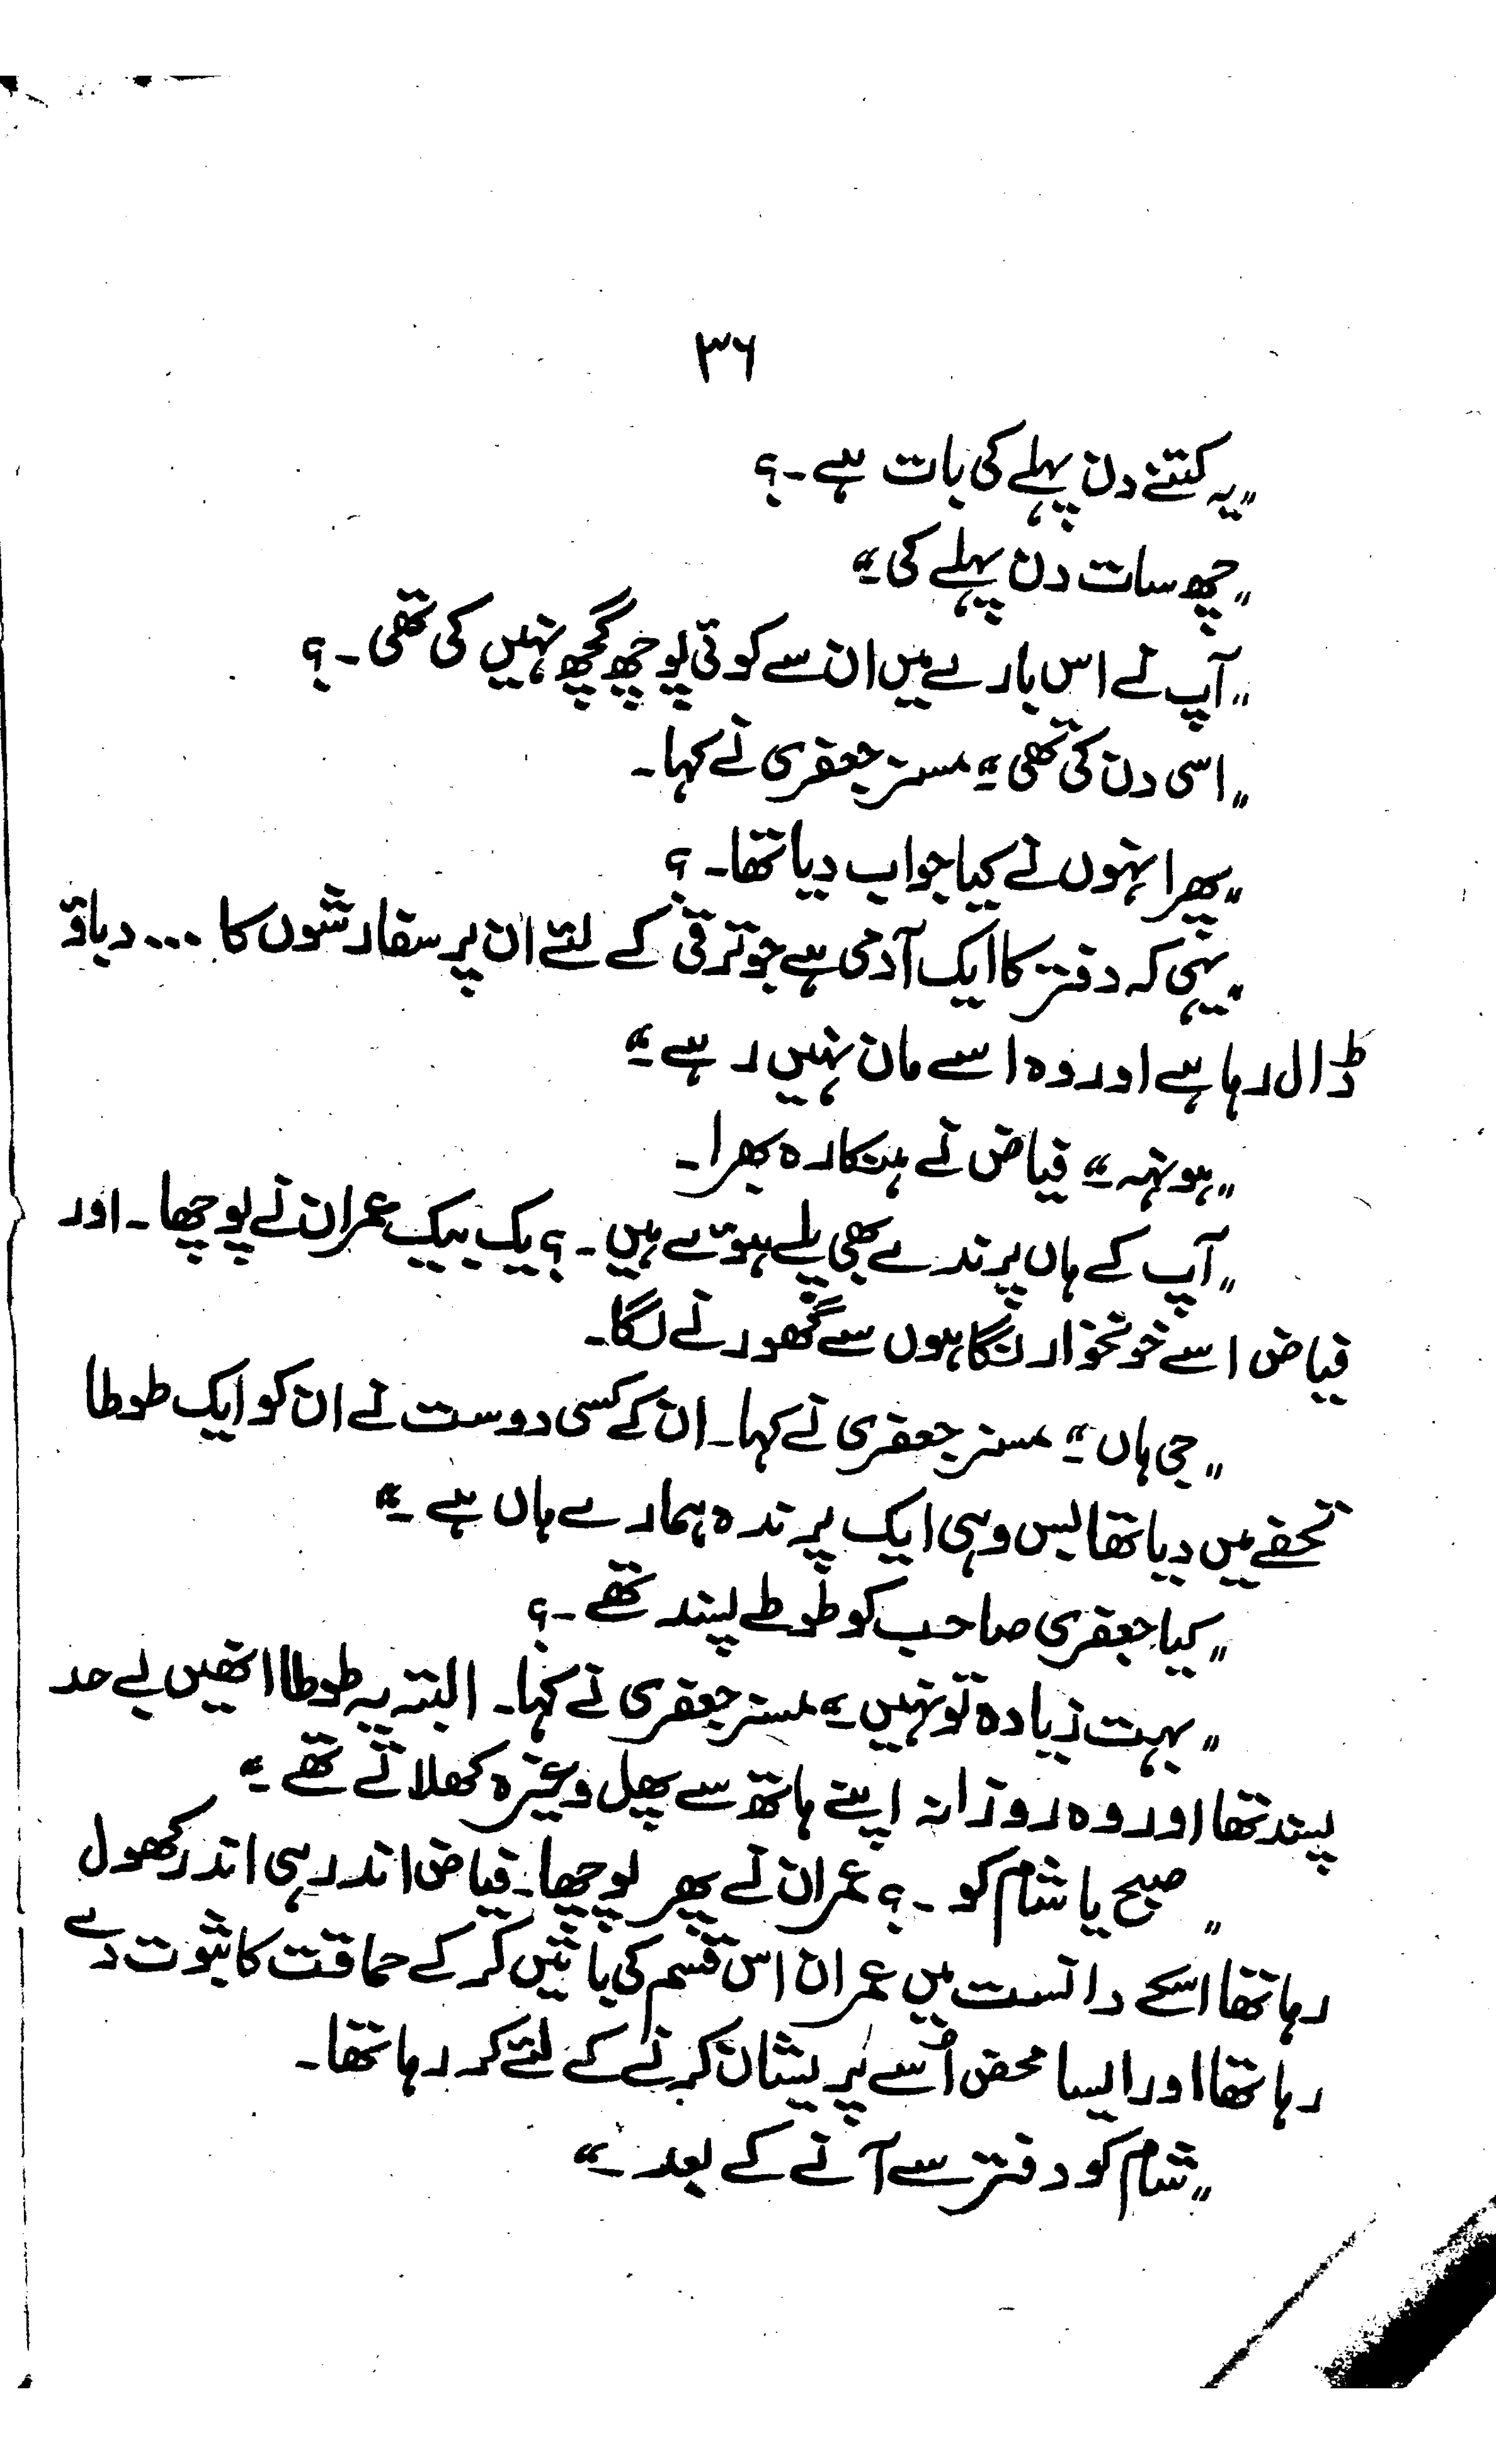 ۳۶
"یہ کتنے دن پہلے کی بات ہے۔؟
"چھ سات دن پہلے کی۔"
"آپ نے اس بارے میں ان سے کوئی پوچھ گچھ نہیں کی تھی۔؟
"اسی دن کی تھی۔" مسز جعفری نے کہا۔
"پھر انہوں نے کیا جواب دیا تھا۔؟
"یہی کہ دفتر کا ایک آدمی ہے جو ترقی کے لئے ان پر سفارشوں کا ... دباؤ
ڈال رہا ہے اور وہ اسے مان نہیں رہے۔"
"ہونہہ۔" فیاض نے ہنکارہ بھرا۔
"آپ کے ہاں پرندے بھی پلے ہوئے ہیں۔؟ یک بیک عمران نے پوچھا۔ اور
فیاض اسے خونخوار نگاہوں سے گھورنے لگا۔
"جی ہاں۔" مسز جعفری نے کہا۔ ان کے کسی دوست نے ان کو ایک طوطا
تحفے میں دیا تھا بس وہی ایک پرندہ ہمارے ہاں ہے۔"
"کیا جعفری صاحب کو طوطے پسند تھے۔؟
"بہت زیادہ تو نہیں۔" مسز جعفری نے کہا۔ البتہ یہ طوطا انھیں بے حد
پسند تھا اور وہ روزانہ اپنے ہاتھ سے پھل وغیرہ کھلاتے تھے۔"
"صبح یا شام کو۔؟ عمران نے پھر پوچھا۔ فیاض اندر ہی اندر کھول
رہا تھا اسکے دانست میں عمران اس قسم کی باتیں کر کے حماقت کا ثبوت دے
رہا تھا اور ایسا محض اُسے پریشان کرنے کے لئے کر رہا تھا۔
"شام کو دفتر سے آنے کے بعد۔"